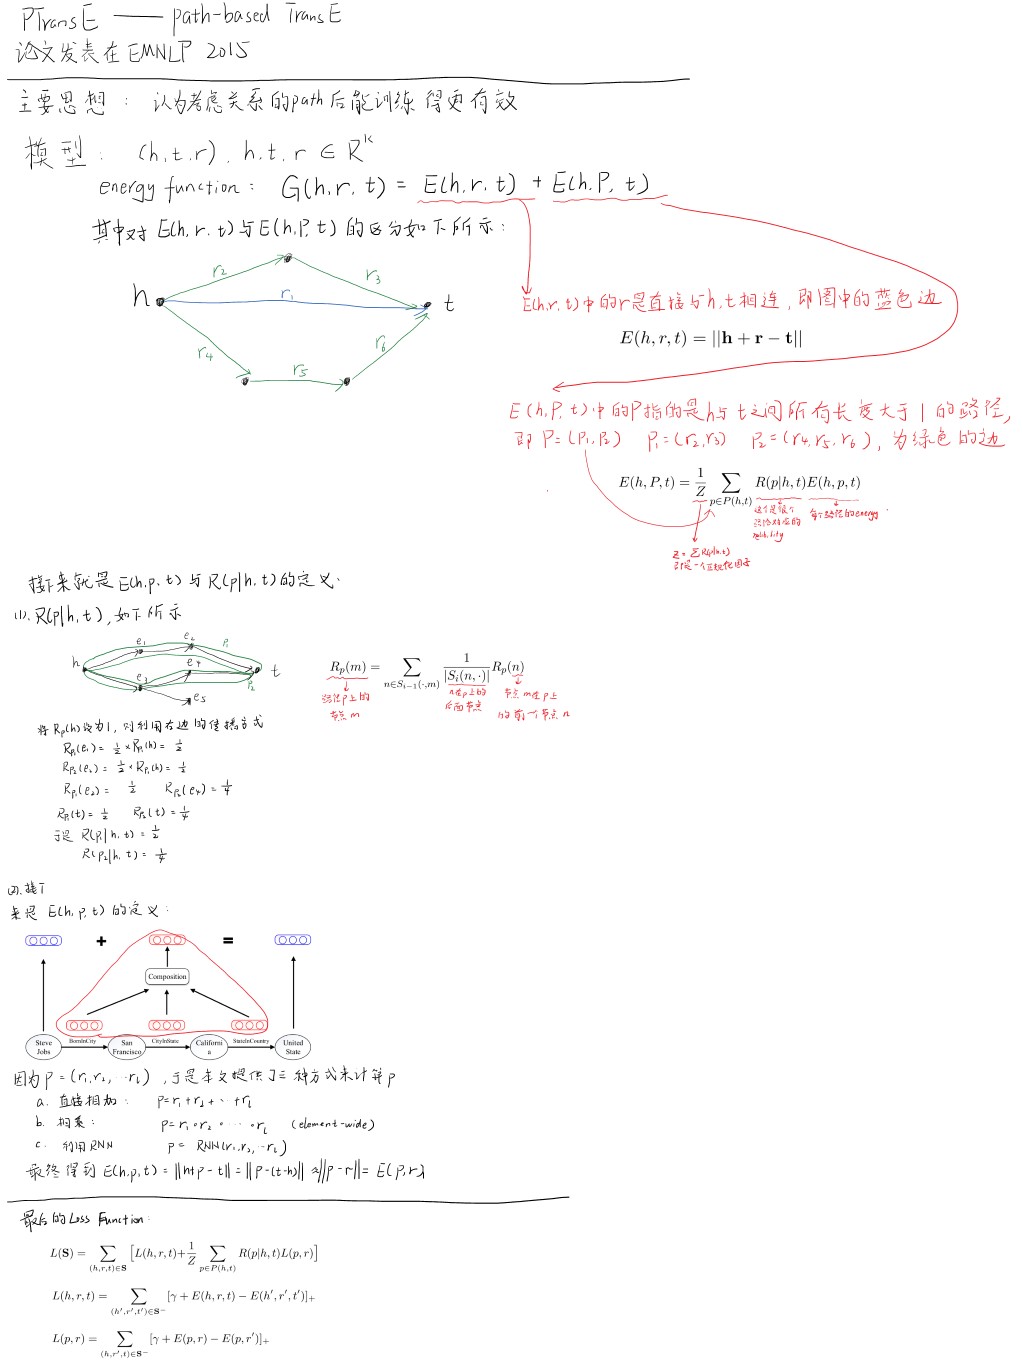 PTransE —— path-based TransE
论文发表在 EMNLP 2015
主要思想： 认为考虑关系的path后能训练得更有效
模型： (h,t,r), h,t,r ∈ R^k
energy function: G(h,r,t) = E(h,r,t) + E(h,P,t)
其中对 E(h,r,t) 与 E(h,P,t) 的区分如下所示：
h r2 r3 r1 t r4 r5 r6
E(h,r,t)中的r是直接与h,t相连，即图中的蓝色边
E(h, r, t) = ||h + r − t||
E(h,P,t)中的P指的是h与t之间所有长度大于1的路径,
即 P=(P1,P2) P1=(r2,r3) P2=(r4,r5,r6), 为绿色的边
E(h, P, t) = 1/Z ∑_{p∈P(h,t)} R(p|h, t)E(h, p, t)
每个路径的energy
Z = ∑R(p|h,t)
接下来就是 E(h,p,t) 与 R(p|h,t) 的定义.
(1). R(p|h,t), 如下所示
h e1 e2 P1 e3 e4 P2 t e5
R_p(m) = ∑_{n∈S_{i−1}(·,m)} 1/|S_i(n,·)| R_p(n)
路径p上的 节点m
n在p上的 后面节点
节点m在p上 的前一个节点n
将 Rp(h) 设为1, 则利用右边的传播方式
Rp1(e1) = 1/2 × Rp1(h) = 1/2
Rp2(e3) = 1/2 × Rp1(h) = 1/2
Rp1(e2) = 1/2 Rp2(e4) = 1/4
Rp1(t) = 1/2 Rp2(t) = 1/4
于是 R(P1|h,t) = 1/2
R(P2|h,t) = 1/4
(2). 接下
来是 E(h,p,t) 的定义：
+ =
Composition
Steve Jobs BornInCity San Francisco CityInState California StateInCountry United State
因为 p=(r1,r2,···rl), 于是本文提供了三种方式来计算p
a. 直接相加： p=r1+r2+···+rl
b. 相乘： p=r1∘r2∘···∘rl (element-wide)
c. 利用RNN p= RNN(r1,r2,···rl)
最终得到 E(h,p,t) = ||h+p−t|| = ||p−(t−h)|| ≈ ||p−r|| = E(p,r)
最后的Loss Function:
L(S) = ∑_{(h,r,t)∈S} [L(h, r, t)+1/Z ∑_{p∈P(h,t)} R(p|h, t)L(p, r)]
L(h, r, t) = ∑_{(h′,r′,t′)∈S⁻} [γ + E(h, r, t) − E(h′, r′, t′)]₊
L(p, r) = ∑_{(h,r′,t)∈S⁻} [γ + E(p, r) − E(p, r′)]₊